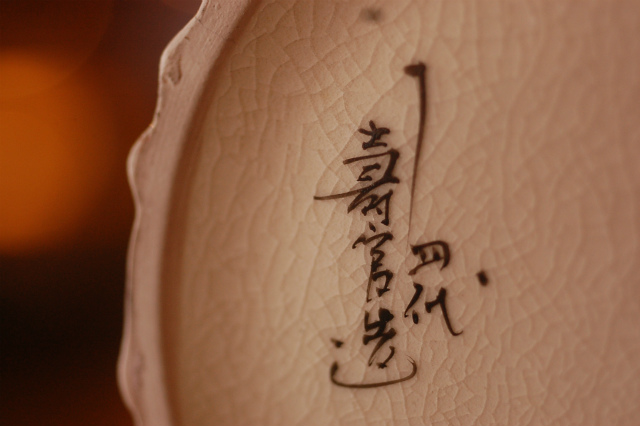 四代
壽官造